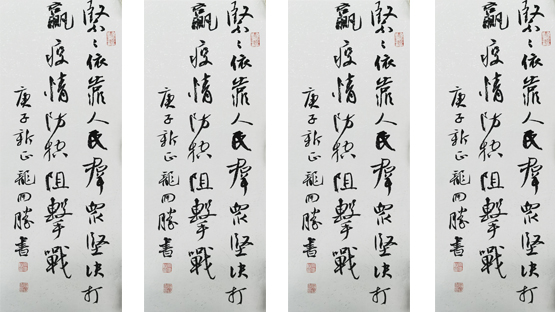 緊〻依靠人民羣眾堅决打
贏疫情防控阻擊戰
庚子新正龍開勝書
緊〻依靠人民羣眾堅决打
贏疫情防控阻擊戰
庚子新正龍開勝書
緊〻依靠人民羣眾堅决打
贏疫情防控阻擊戰
庚子新正龍開勝書
緊〻依靠人民羣眾堅决打
贏疫情防控阻擊戰
庚子新正龍開勝書